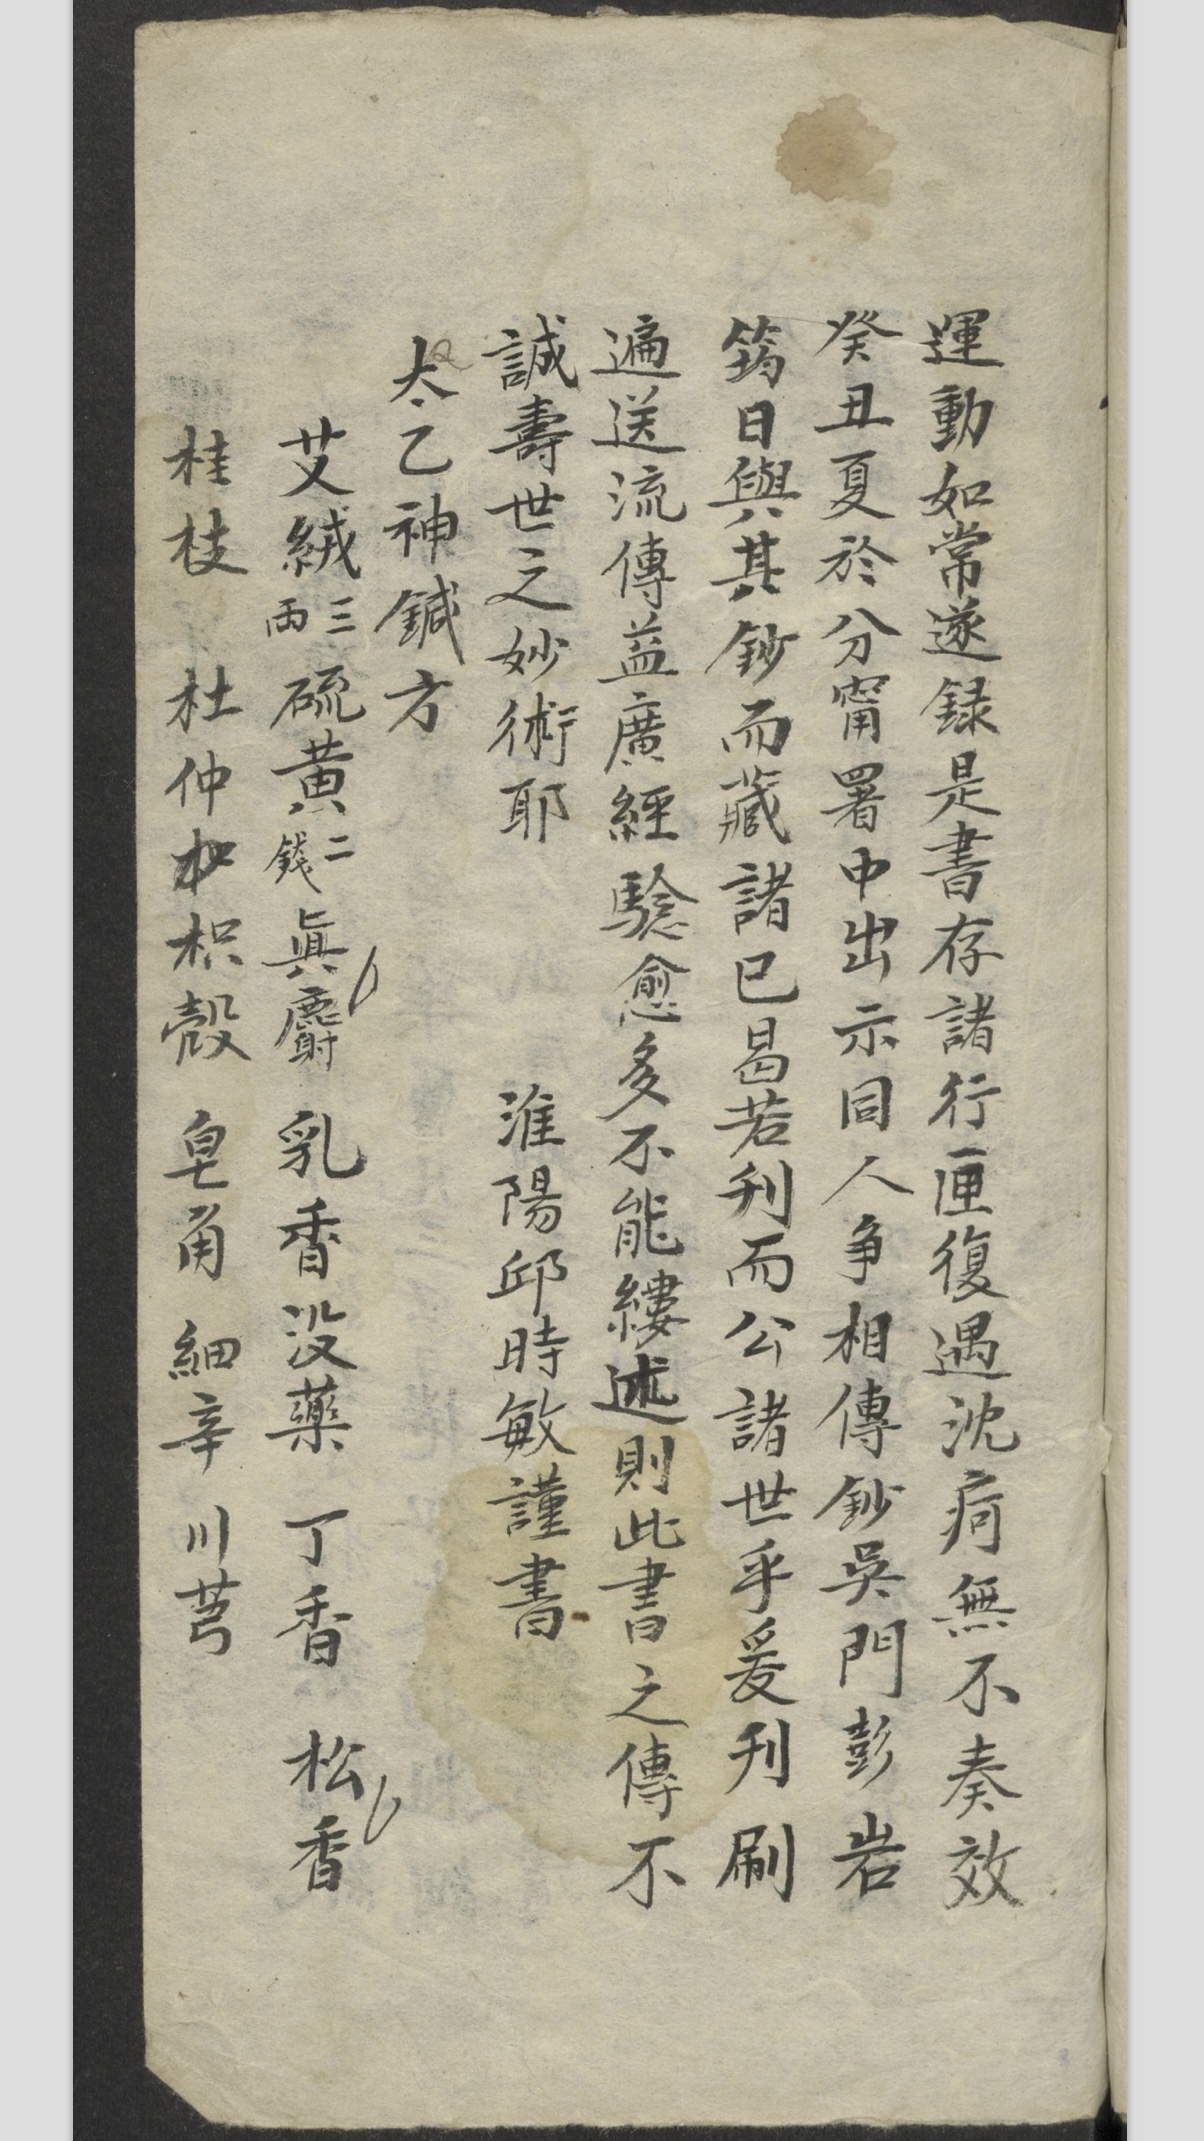 運動如常遂録是書存諸行匣復遇沈疴無不奏效
癸丑夏於分甯署中出示同人争相傳鈔吳門彭岩
筠曰與其鈔而藏諸已曷若刋而公諸世乎爰刋刷
遍送流傳益廣經騐愈多不能縷述則此書之傳不
誠壽世之妙術耶　淮陽邱時敏謹書
太乙神鍼方
艾絨三兩 硫黄二錢 眞麝 乳香 没藥 丁香 松香
桂枝 杜仲 枳殼 皂角 細辛 川芎